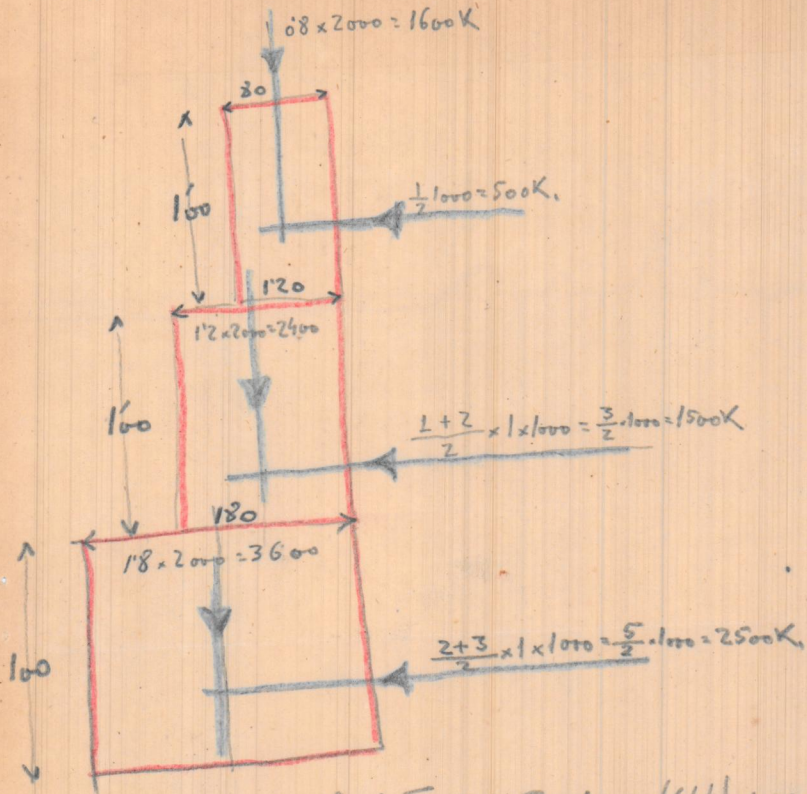 0'8 x 2000 = 1600 K
80
1'00
1/2 1000 = 500 K.
1'20
1'2 x 2000 = 2400
1'00
1+2/2 x 1 x 1000 = 3/2 · 1000 = 1500 K
180
1'8 x 2000 = 3600
100
2+3/2 x 1 x 1000 = 5/2 · 1000 = 2500 K.